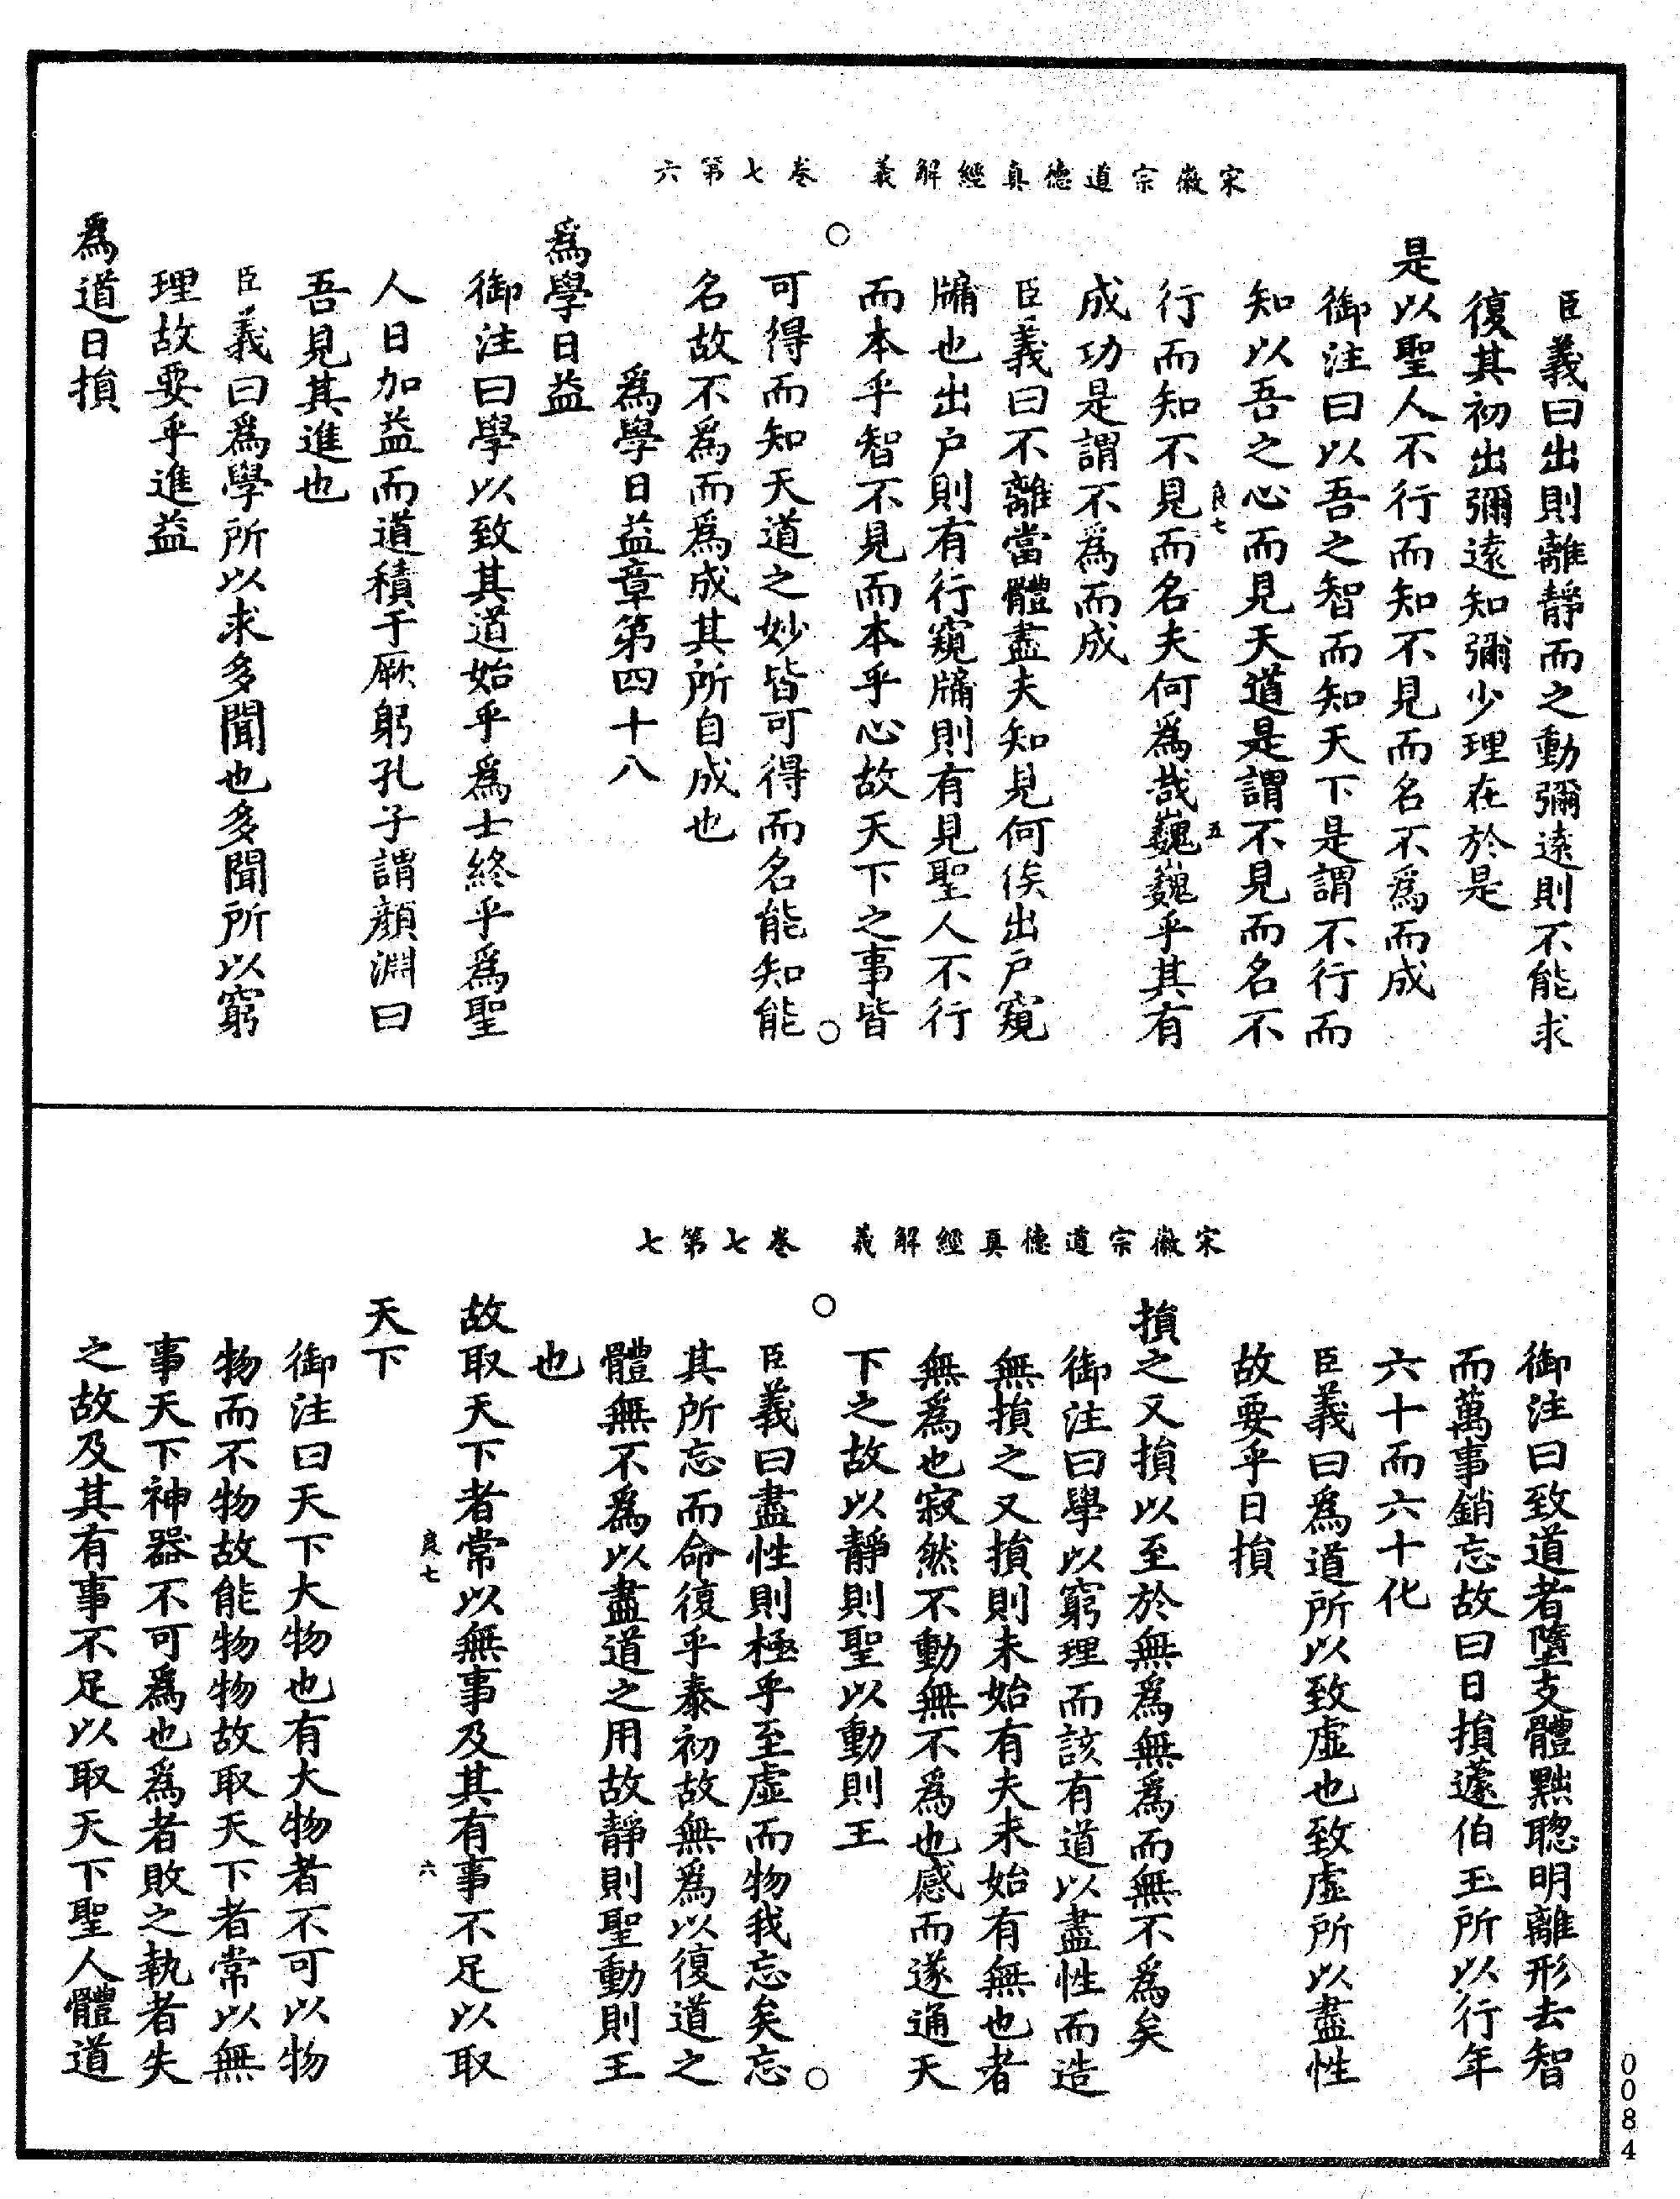 宋徽宗道德真經解義　卷七第六
臣義曰出則離靜而之動彌遠則不能求
復其初出彌遠知彌少理在於是
是以聖人不行而知不見而名不爲而成
御注曰以吾之智而知天下是謂不行而
知以吾之心而見天道是謂不見而名不
良七　五
行而知不見而名夫何爲哉巍巍乎其有
成功是謂不爲而成
臣義曰不離當體盡夫知見何俟出戶窺
牖也出戶則有行窺牖則有見聖人不行
而本乎智不見而本乎心故天下之事皆
可得而知天道之妙皆可得而名能知能
名故不爲而爲成其所自成也
爲學日益章第四十八
爲學日益
御注曰學以致其道始乎爲士終乎爲聖
人日加益而道積于厥躬孔子謂顏淵曰
吾見其進也
臣義曰爲學所以求多聞也多聞所以窮
理故要乎進益
爲道日損
宋徽宗道德真經解義　卷七第七
御注曰致道者墮支體黜聰明離形去智
而萬事銷忘故曰日損蘧伯玉所以行年
六十而六十化
臣義曰爲道所以致虛也致虛所以盡性
故要乎日損
損之又損以至於無爲無爲而無不爲矣
御注曰學以窮理而該有道以盡性而造
無損之又損則未始有夫未始有無也者
無爲也寂然不動無不爲也感而遂通天
下之故以靜則聖以動則王
臣義曰盡性則極乎至虛而物我忘矣忘
其所忘而命復乎泰初故無爲以復道之
體無不爲以盡道之用故靜則聖動則王
也
故取天下者常以無事及其有事不足以取
良七　六
天下
御注曰天下大物也有大物者不可以物
物而不物故能物物故取天下者常以無
事天下神器不可爲也爲者敗之執者失
之故及其有事不足以取天下聖人體道
0084